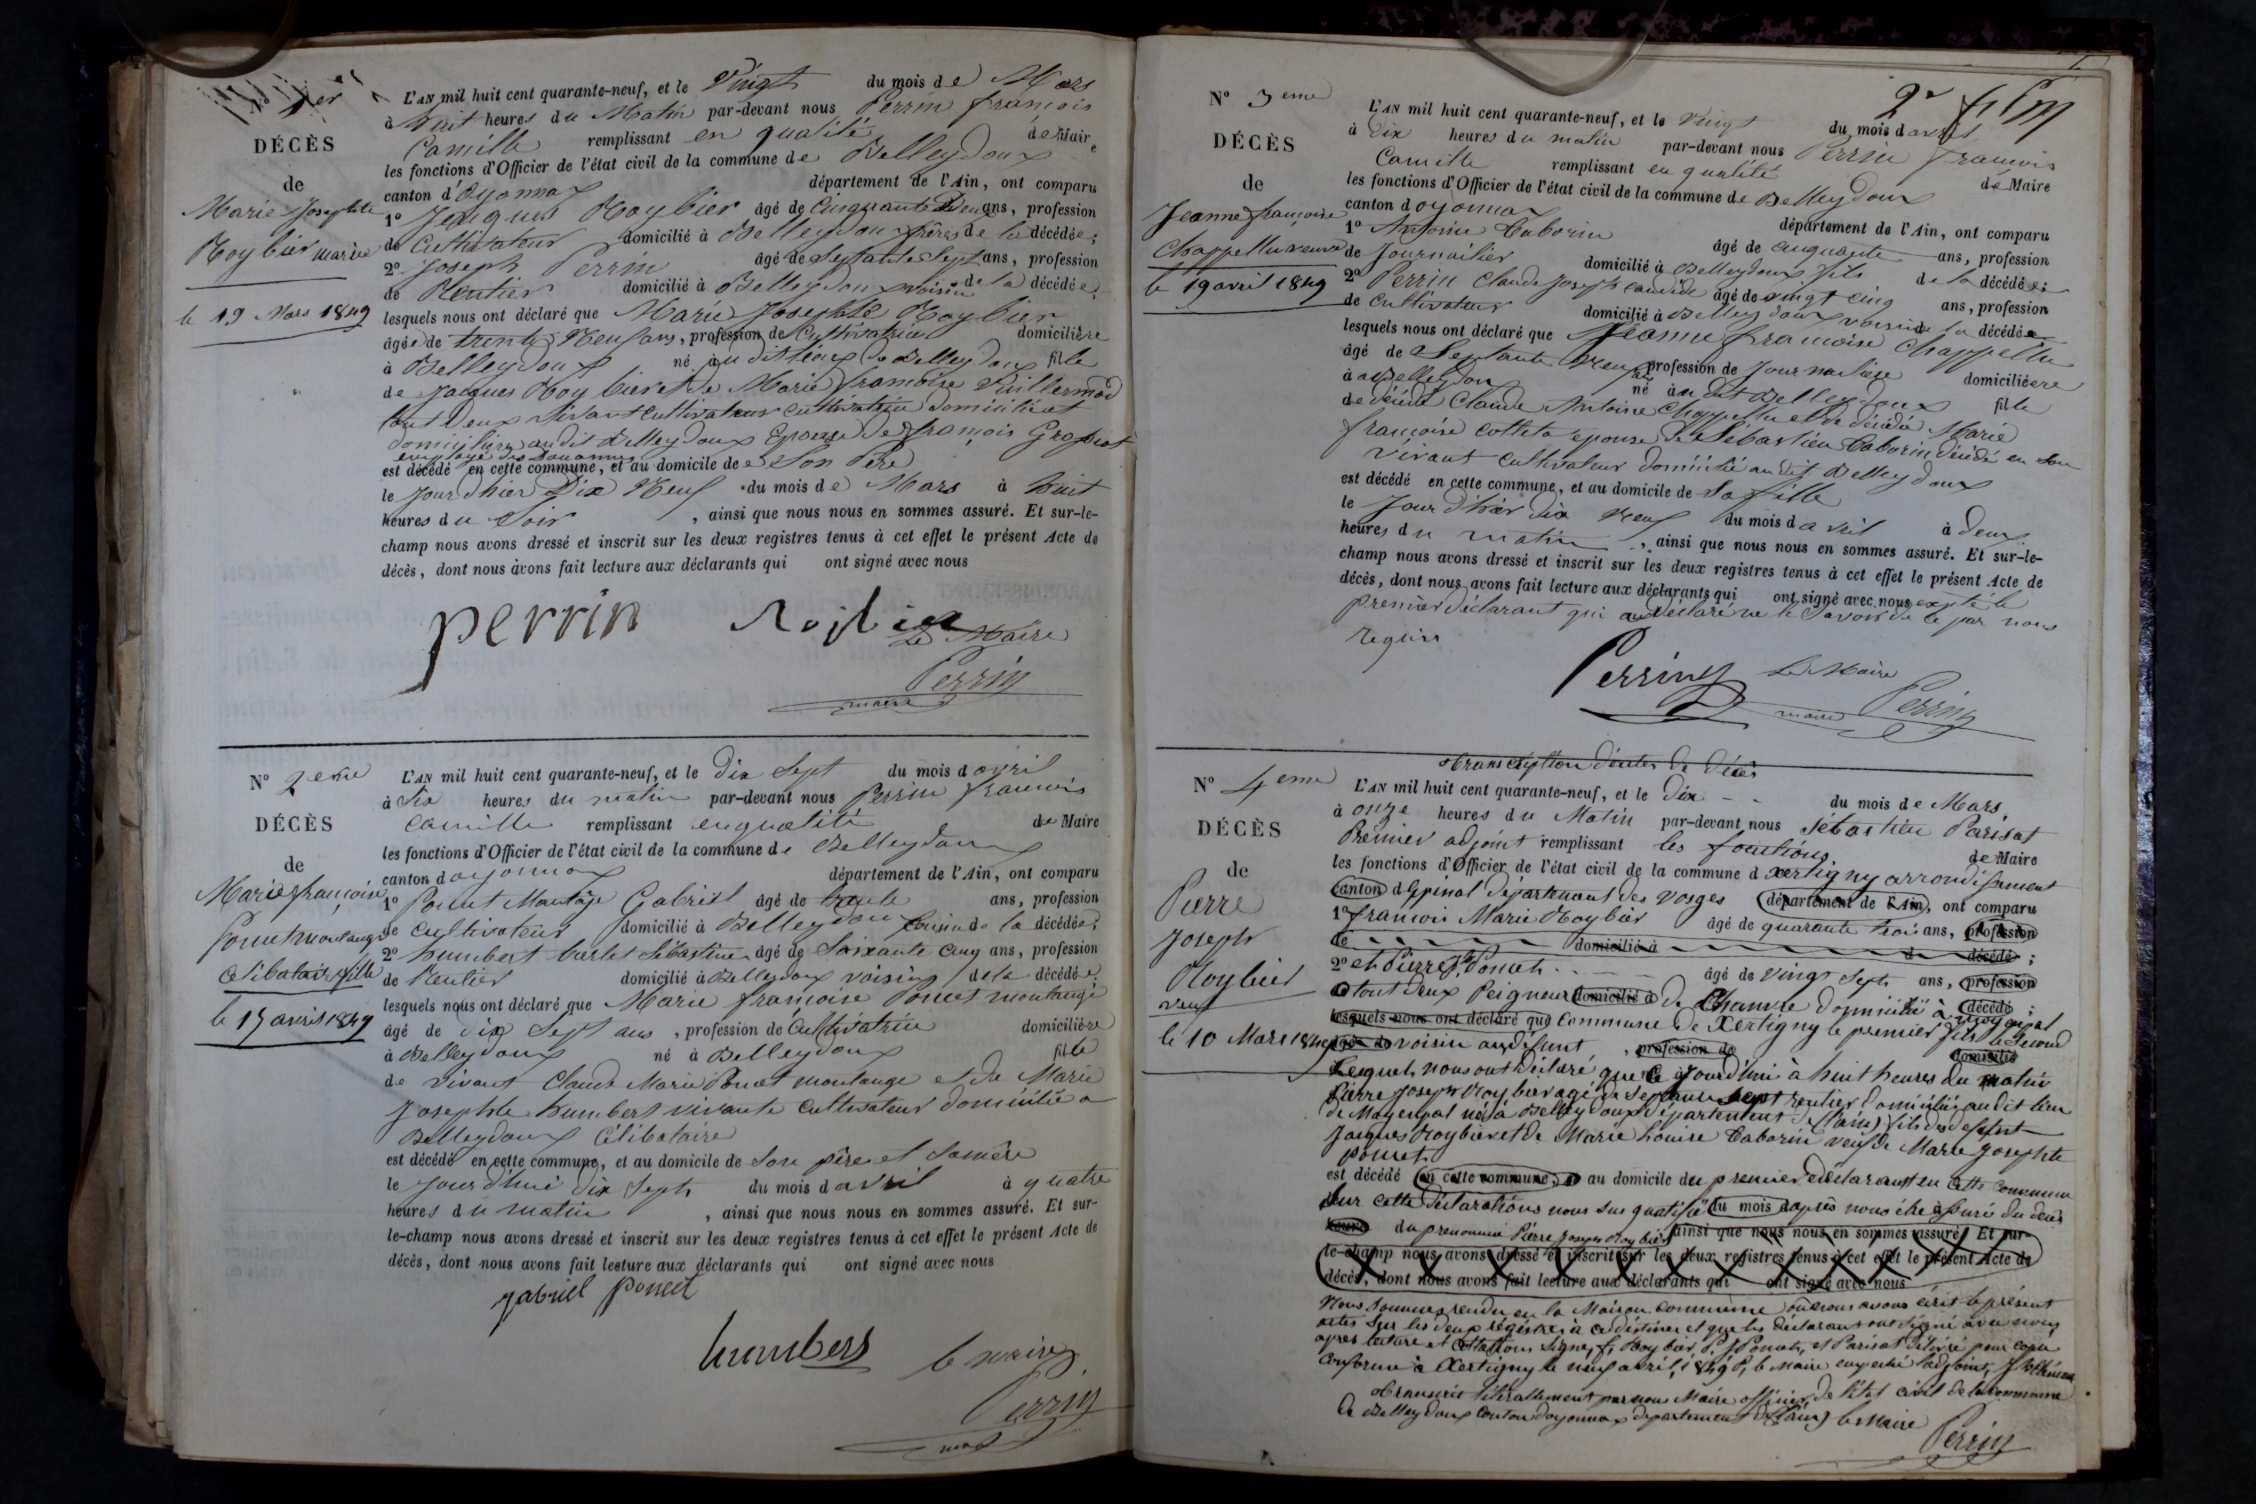 N° 1er
DÉCÈS
de
Marie Josephte
Roybier mariée
le 19 Mars 1849
L'AN mil huit cent quarante-neuf, et le Vingt du mois de Mars
à huit heures du Matin par-devant nous Perrin françois
Camille remplissant en qualité de Maire
les fonctions d'Officier de l'état civil de la commune de Belleydoux
canton d'Oyonnax département de l'Ain, ont comparu
1° Jacques Roybier âgé de Cinquante Deux ans, profession
de Cultivateur domicilié à Belleydoux frère de la décédée;
2° Joseph Perrin âgé de Septante Sept ans, profession
de Rentier domicilié à Belleydoux voisin de la décédée;
lesquels nous ont déclaré que Marie Josephte Roybier
âgée de trente Neuf ans, profession de Cultivatrice domicilière
à Belleydoux né au dit lieux de Belleydoux fille
de Jacques Roybier et de Marie framoise Vuillermod
tout Deux Vivant cultivateur cultivatrice domicilié et
domicilière au dit Belleydoux Epouse de françois Grospiat
employé des Douannes
est décédé en cette commune, et au domicile de Son Père
le Jour d'hier Dix Neuf du mois de Mars à huit
heures du Soir , ainsi que nous nous en sommes assuré. Et sur-le-
champ nous avons dressé et inscrit sur les deux registres tenus à cet effet le présent Acte de
décès, dont nous avons fait lecture aux déclarants qui ont signé avec nous
perrin Roybier
Le Maire
Perrin
maire
N° 2eme
DÉCÈS
de
Marie françoise
Poncet montange
Célibataire fille
le 17 avril 1849
L'AN mil huit cent quarante-neuf, et le Dix Sept du mois d avril
à Six heures du matin par-devant nous Perrin francois
Camille remplissant en qualité de Maire
les fonctions d'Officier de l'état civil de la commune de Belleydoux
canton d oyonnax département de l'Ain, ont comparu
1° Poncet Montage Gabriel âgé de trente ans, profession
de cultivateur domicilié à Belleydoux Cousin de la décédée;
2° humbert Sébastien âgé de Soixante Cinq ans, profession
de Rentier domicilié à Belleydoux voising de la décédée;
lesquels nous ont déclaré que Marie françoise Poncet montange
âgé de dix Sept ans , profession de Cultivatrice domicilière
à Belleydoux né à Belleydoux fille
de vivant Claude Marie Poncet montange et de Marie
Josephte humbert vivante cultivateur domicilié a
Belleydoux Célibataire
est décédé en cette commune, et au domicile de Son père et Samère
le Jour d'hui dix Sept du mois d avril à quatre
heures du matin , ainsi que nous nous en sommes assuré. Et sur-
le-champ nous avons dressé et inscrit sur les deux registres tenus à cet effet le présent Acte de
décès, dont nous avons fait lecture aux déclarants qui ont signé avec nous
gabriel poncet
humbers le maire
Perrin
2e film
N° 3eme
DÉCÈS
de
Jeanne françoise
Chappellu veuve
le 19 avril 1849
L'AN mil huit cent quarante-neuf, et le vingt du mois d avril
à Dix heures du matin par-devant nous Perrin francois
Camille remplissant en qualité de Maire
les fonctions d'Officier de l'état civil de la commune de Belleydoux
canton d oyonnax département de l'Ain, ont comparu
1° Antoine Taborin âgé de cinquante ans, profession
de Journailier domicilié à Belleydoux fils de la décédée;
2° Perrin Claude Joseph candide âgé de vingt cinq ans, profession
de Cultivateur domicilié à Belleydoux voisin de la décédée
lesquels nous ont déclaré que Jeanne francoise Chappellu
âgé de Septante Neuf ans profession de Journalière domiciliéere
à Belleydoux né au dit Belleydoux fille
de décédé Claude Antoine Chappellu et de décédé Marie
françoise Cottet epouse de Sébastien Taborin décédé en Son
vivant cultivateur domicilié au dit Belleydoux
est décédé en cette commune, et au domicile de Sa fille
le Jour d'hier dix neuf du mois d avril à deux
heures du matin , ainsi que nous nous en sommes assuré. Et sur-le-
champ nous avons dressé et inscrit sur les deux registres tenus à cet effet le présent Acte de
décès, dont nous avons fait lecture aux déclarants qui ont signé avec nous excepté le
premier déclarant qui a déclaré ne le Savoir de ce par nous
requis
Perrin Le Maire
Perrin
maire
Transcription d'acte de Décès
N° 4eme
DÉCÈS
de
Pierre
Joseph
Roybier
veuf
le 10 Mars 1849
L'AN mil huit cent quarante-neuf, et le Dix du mois de Mars,
à onze heures du Matin par-devant nous Sébastien Parisat
Premier adjoint remplissant les fonctions de Maire
les fonctions d'Officier de l'état civil de la commune d Xertigny arrondissement
canton d Epinal Département des Vosges département de l'Ain, ont comparu
1° francois Marie Roybier âgé de quarante trois ans, profession
de domicilié à d décédé ;
2° et Pierre J. Poncet âgé de vingt Sept ans, profession
tout deux Peigneur domicilié à de Chanvre domicilié à décédé ;
lesquels nous ont déclaré que Commune de Xertigny le premier fils le Second
âgé de voisin au défunt , profession de domicilié
Lesquels nous ont déclaré que ce Jourd'hui à huit heures du matin
Pierre Joseph Roybier agé de Septante Sept rentier domicilié au dit lieu
de Moyenpal né à Belleydoux Département de (l'ain) fils de defunt
Jacques Roybier et de Marie Louise Taborin veuf de Marie Josephte
poncet
est décédé en cette commune, au domicile du premier déclarant en Cette Commune
Sur cette déclarations nous Sus qualifié du mois d après nous être assuré du décès
heures du prenommé Pierre Joseph Roybier ainsi que nous nous en sommes assuré. Et sur-
le-champ nous avons dressé et inscrit sur les deux registres tenus à cet effet le présent Acte de
décès, dont nous avons fait lecture aux déclarants qui ont signé avec nous
Nous Sommes rendu en la Maison commune où nous avons écrit le présent
actes Sur les deux régistres à ce déstinés et que les Déclarans ont Signé avec nous
après lecture et Signé, f. Roybier, P. J. Poncet, et Parisat Délivré pour copie
Conforme à Xertigny le neuf avril 1849 P. le Maire empeché l'adjoint,
Transcrit litérallement par nous Maire officier de l'état civil de la commune
de Belleydoux Canton d'oyonnax département de (l'ain) le Maire
Perrin